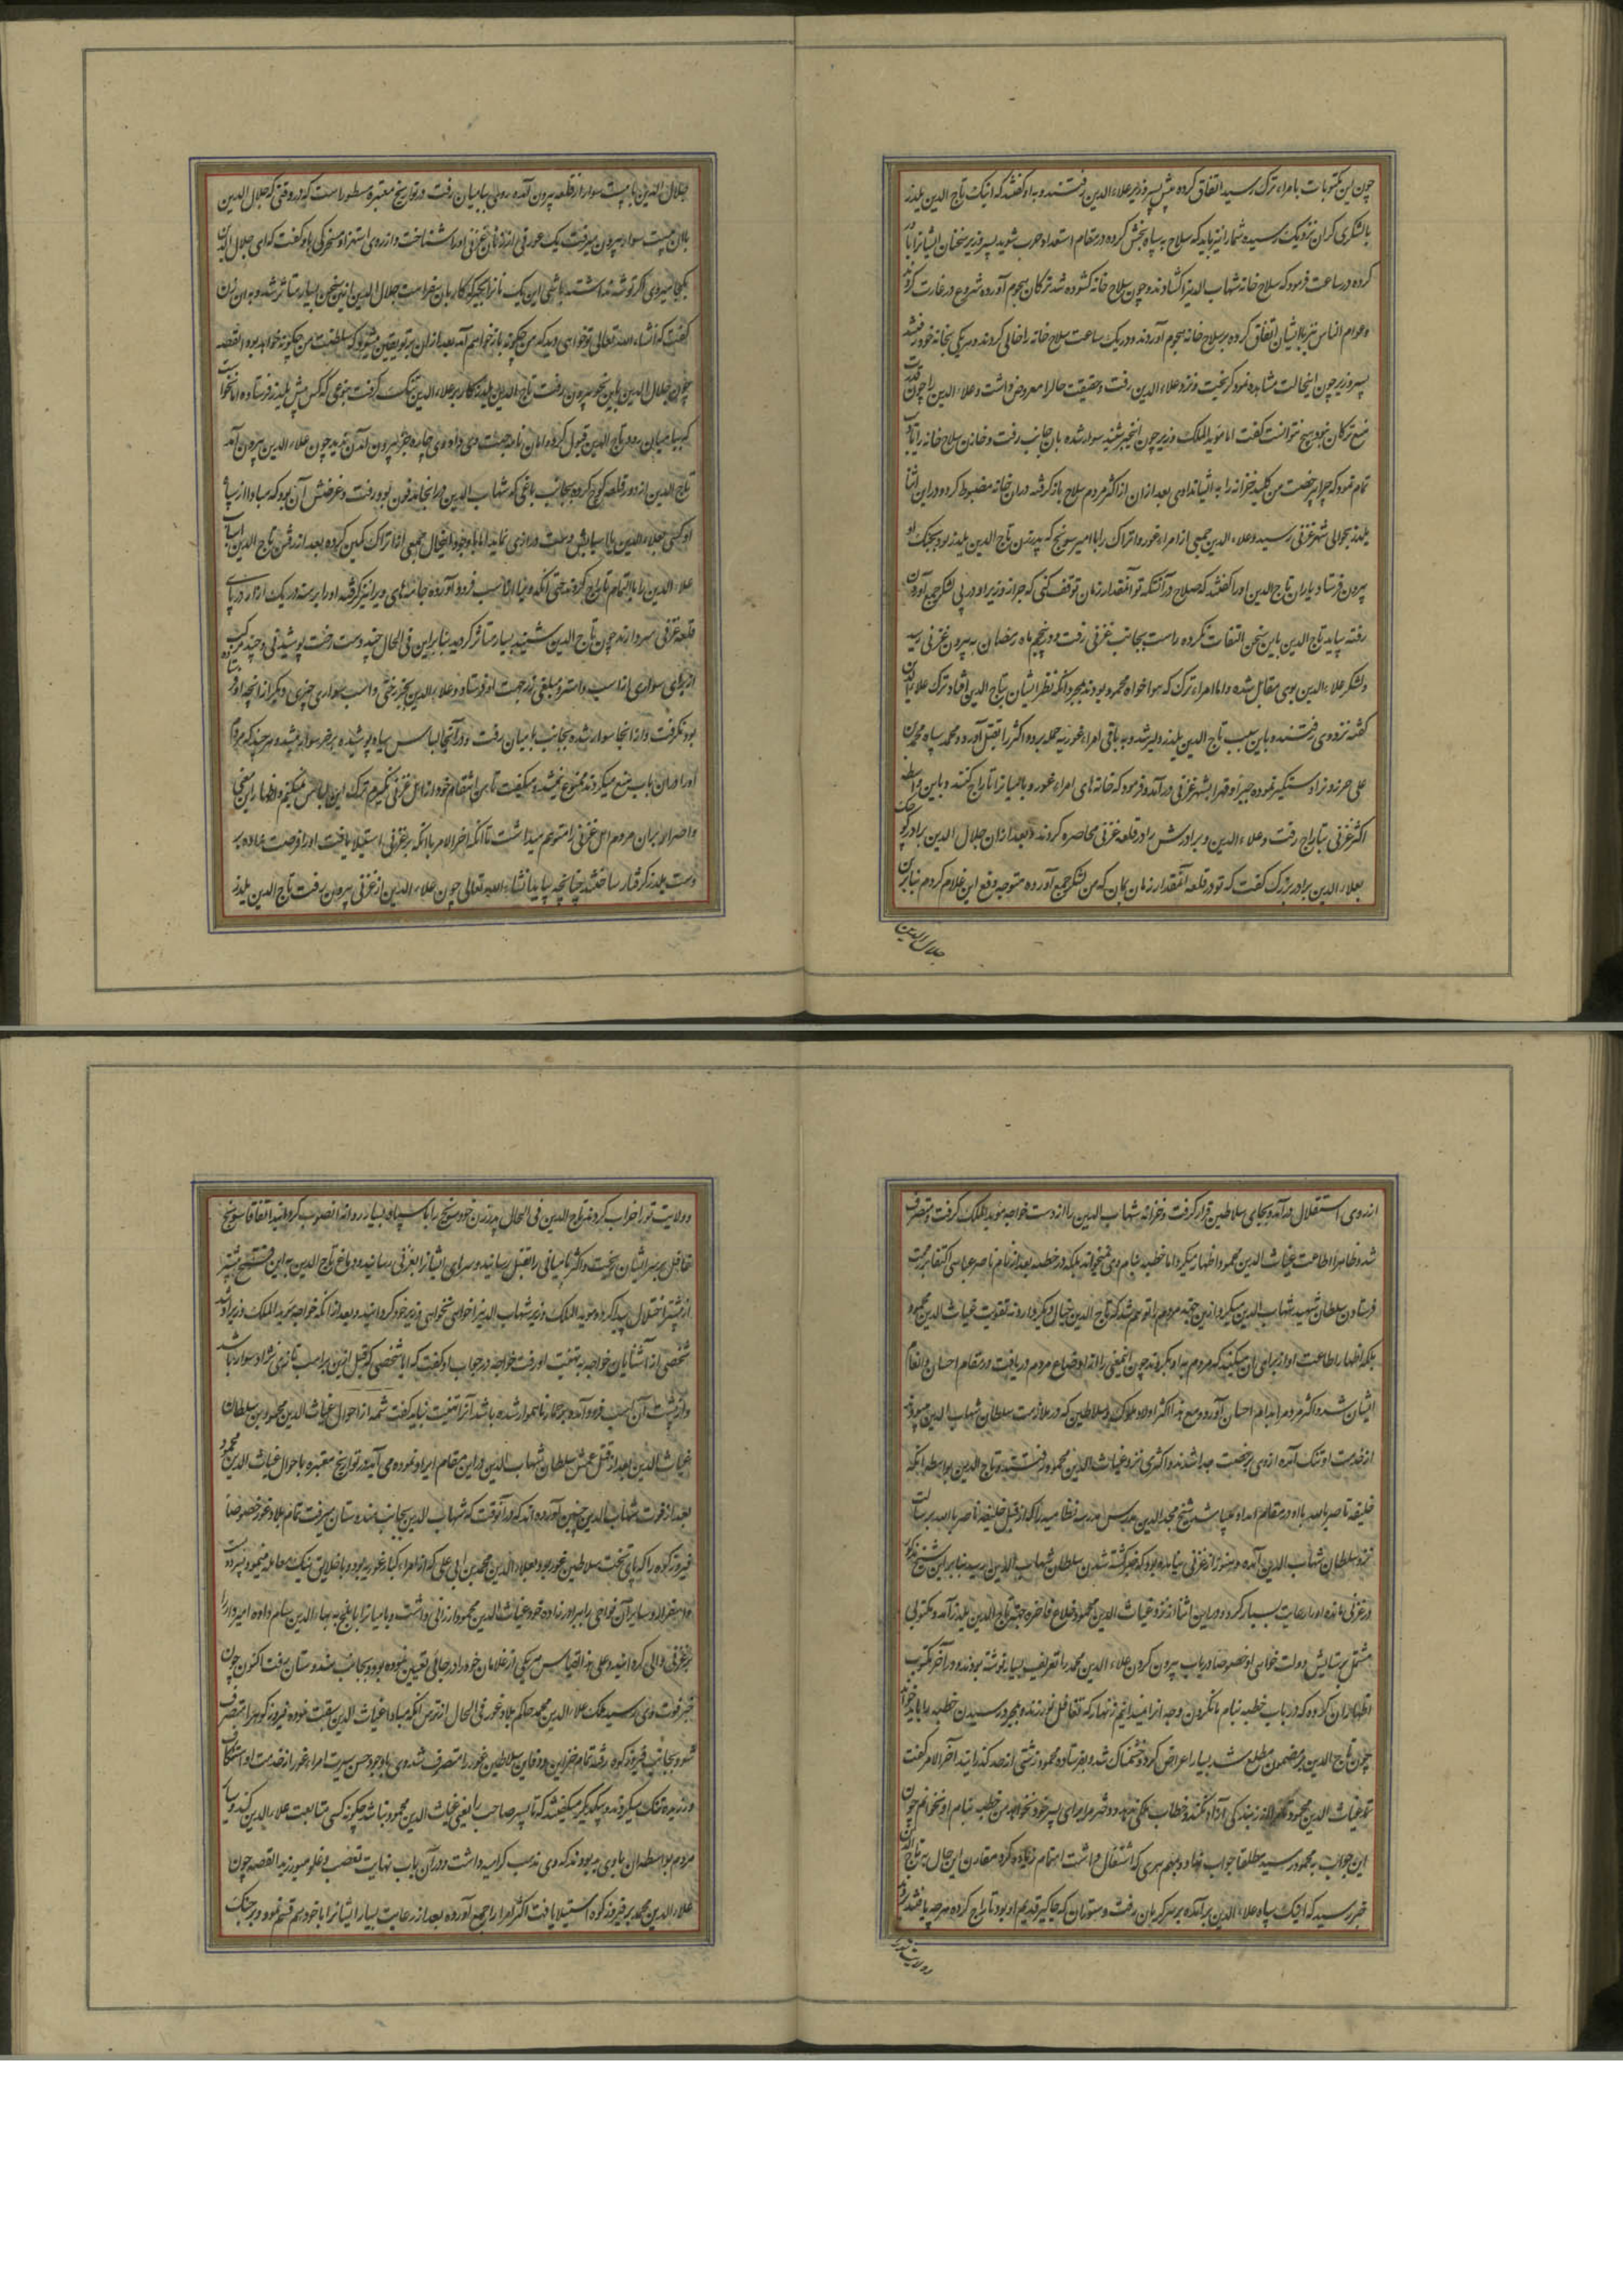 چون این مکتوبات بامراء ترک رسید اتفاق کرده پیش پسر وزیر علاء الدین رفتند و به او گفتند که اینک تاج الدین یلدز
با لشکری گران نزدیک رسیده شما را نیز باید که سلاح به سپاه بخش کرده در مقام استعداد حرب شوید پسر وزیر سخنان ایشانرا باور
کرده در ساعت فرمود که سلاح خانه شهاب الدین را کشادند و چون سلاح خانه کشوده شد ترکان هجوم آورده شروع در غارت کردند
و عوام الناس نیز با ایشان اتفاق کرده بر سلاح خانه هجوم آوردند و در یک ساعت سلاح خانه را خالی کردند و هر یکی بخانه خود رفتند
پسر وزیر چون اینحالت مشاهده نمود کریخت و نزد علاء الدین رفت و حقیقت حال را معروض داشت و علاء الدین را چون قدرت
منع ترکان نبود هیچ نتوانست کفت اما موید الملک وزیر چون این خبر شنید سوار شده بان جانب رفت و خازن سلاح خانه را
تمام نمود که چرا بی رخصت من کلید خزانه را به ایشان دادی بعد از ان از اکثر مردم سلاح باز کرفته در ان خانه مضبوط کرد و در این اثنا
یلدز بحوالی شهر غزنی رسید و علاء الدین جمعی از امراء غور و اتراک را با امیر سونج که پدر زن تاج الدین یلدز بود بجنک او
بیرون فرستاد یاران تاج الدین او را کفتند که صلاح در آنستکه تو آنقدار زمان توقف کنی که جراز وزیر او در پی لشکر جمع آوردن
رفته بیاید تاج الدین باین سخن التفات نکرده راست بجانب غزنی رفت و در پنجم ماه رمضان به بیرون غزنی رسید
و لشکر علاء الدین بوی مقابل شده و اما امراء ترک که هوا خواه محمود بودند بمجرد انکه نظر ایشان بتاج الدین افتاد ترک علاء الدین
کفته نزد وی رفتند و باین سبب تاج الدین یلدز دلیر شد و به باقی امراء غوریه حمله برده اکثر را بقتل آورد و محمد سپاه محمد بن
علی حر بزدند و دستکیر نموده جبراً و قهراً بشهر غزنی در آمد و فرمود که خانه های امراء غور و بامیانرا تاراج کنند و باین واسطه
اکثر غزنی بتاراج رفت و علاء الدین و برادرش را در قلعه غزنی محاصره کردند بعد از ان جلال الدین برادر کوچک
بعلاء الدین برادر بزرک کفت که تو در قلعه آنقدار زمان بمان که من لشکر جمع آورده متوجه دفع این غلام کردم بنابرین
جلال الدین
جلال الدین با بیست سوار از قلعه بیرون آمده روی ببامیان رفت در تواریخ معتبره مسطور است که در وقتی که جلال الدین
باان بیست سوار بیرون میرفت یک عورتی از زنان غزنی او را شناخت و از روی استهزا و مسخرکی باو کفت که ای جلال الدین
بکجا میروی اکر توشه نداشته باشی این یک نانرا بکیر که کار بان خواست جلال الدین ازین سخن بسیار متاثر شد و به ان زن
کفت که انشاء الله تعالی تو خواهی دید که من چکونه باز خواهم آمد بعد از ان بر تو یقین میشود که سلطنت من چکونه خواهد بود القصه
چون جلال الدین باین نحو بیرون رفت تاج الدین یلدز کار بر علاء الدین تنک کرفت بنوعی که کس پیش یلدز فرستاده امان خواست
که ببامیان رود تاج الدین قبول کرده امان نامه جهت وی داد وی چاره جز بیرون آمدن ندید چون علاء الدین بیرون آمد
تاج الدین از دور قلعه کوچ کرده بجانب باغی که شهاب الدین در انجا مدفون بود رفت و غرضش آن بود که مبادا از سپاه
او کسی بعلاء الدین یا سپاهش دست درازی نماید اما با وجود اینحال جمعی از اتراک کمین کرده بعد از رفتن تاج الدین اسباب
علاء الدین را بالتمام تاراج کردند حتی انکه ویرا از اسب فرود آورده جامه های ویرا نیز کرفته او را برهنه در یک ازار در پای
قلعه غزنی سر دادند چون تاج الدین شنید بسیار متاثر کردید بنابراین فی الحال چند دست رخت پوشیدنی و چند مرکب
از برای سواری از اسب و استر و مبلغی زر جهت او فرستاد و علاء الدین بجز رختی و اسب سواری چیزی دیکر از انچه او فرستاده
بود نکرفت و از انجا سوار شده بجانب بامیان رفت و در آنجا لباس سیاه پوشیده بر خر سوار میشد و هر چند که مردم
او را ازان باب منع میکردند ممنوع نمیشد و میکفت تا من انتقام خود از اهل غزنی نکیرم ترک این لباس نمیکنم و اظهار این معنی
و اصرار بران مردم اهل غزنی را متوهم میداشت تا آنکه اخر الامر با انکه بر غزنی استیلا یافت او را فرصت نداده بر
دست یلدز کرفتار ساختند چنانچه بیاید انشاء الله تعالی چون علاء الدین از غزنی بیرون رفت تاج الدین یلدز
از روی استقلال در آمده بجای سلاطین قرار کرفت و خزانه شهاب الدین را از دست خواجه موید الملک کرفت و متصرف
شد و ظاهراً اطاعت غیاث الدین محمود اظهار میکرد اما خطبه بنام وی نمیخواند بلکه در خطبه بعد از نام ناصر عباسی اکتفا بر رحمت
فرستادن سلطان شهید شهاب الدین میکرد و ازین جهت مردم را توهم شد که تاج الدین خیال دیکر دارد نه تقویت غیاث الدین محمود
بلکه اظهار اطاعت او از برای ان میکند که مردم به او بکروند چون اینمعنی را از اوضاع مردم دریافت در مقام احسان و انعام
ایشان شد و اکثر مردم را بدام احسان آورد و مع هذا اکثر اولاد ملوک و سلاطین که در ملازمت سلطان شهاب الدین میبودند
از خدمت او تنک آمده از وی برخصت جدا شدند و اکثری نزد غیاث الدین محمود رفتند و تاج الدین بواسطه انکه
خلیفه ناصر بالله با او در مقام امداد باشد شیخ مجد الدین مدرس مدرسه نظامیه را که از قبل خلیفه ناصر بالله برسالت
نزد سلطان شهاب الدین آمده و هنوز از غزنی نیامده بود که خبر کشته شدن سلطان شهاب الدین رسید بنابراین شیخ مذکور
در غزنی مانده او را رعایت بسیار کرد و در این اثنا از نزد غیاث الدین محمود خلاع فاخره جهت تاج الدین یلدز آمد و مکتوبی
مشتمل بر ستایش و دولت خواهی او خصوصاً در باب بیرون کردن علاء الدین محمد را تعریف بسیار نوشته بودند و در آخر مکتوب
اظهار ان کرده که در باب خطبه بنام ما نکردن وجه انرا نمیدانیم زنهار که تغافل نورزند و بمجرد رسیدن خطبه را باید خواند
چون تاج الدین بر مضمون مطلع شد بسیار اعراض کرد و خشمناک شده بفرستاده محمود زشتی از حد کذرانید آخر الامر کفت
تا غیاث الدین محمود مرا از بندکی آزاد نکند و خطاب ملکی ندهد و دختر مرا برای پسر خود نخواهد من خطبه بنام او نخوانم چون
این جواب به محمود رسید مطلقاً جواب نداد و بمهم هری که اشتغال داشت اهتمام زیاده کرد مقارن این حال به تاج الدین
خبر رسید که اینک سپاه علاء الدین بر آمده بر سر کرمان رفت و سوران که جاکیر قدیم او بود تاراج کرده هر چه یافتند بردند
و ولایت تو
و ولایت تو را خراب کردند تاج الدین فی الحال پدر زن خود سونج را با سپاه بسیار روانه انصوب کردانید اتفاقاً سونج
غافل بر سر ایشان ریخت و اکثر بامیانی را بقتل رسانید و سرهای ایشانرا بغزنی رسانید و دماغ تاج الدین به این فتح بیشتر
از پیشتر اختلال پیدا کرد و موید الملک وزیر شهاب الدین را خواهی نخواهی وزیر خود کردانید و بعد از انکه خواجه موید الملک وزیر او شد
شخصی از آشنایان خواجه به تهنیت او رفت خواجه در جواب او کفت که ایا شخصی که قبل ازین بر اسب تازی نژاد سوار باشد
و از پشت آن اسب فرود آمده بر حمار ناهموار شده باشد آنرا تهنیت نباید کفت شمه از احوال غیاث الدین محمود بن سلطان
غیاث الدین بعد از قتل عمش سلطان شهاب الدین در این مقام ایراد نموده می آید در تواریخ معتبره باحوال غیاث الدین محمود
بعد از فوت شهاب الدین چنین آورده اند که در آنوقت که شهاب الدین بجانب هندوستان میرفت تمام بلاد غور خصوصاً
فیروز کوه را که پای تخت سلاطین غور بود بعلاء الدین محمد بن ابی علی که از امراء کبار غوریه بود و با خلایق نیک معامله مینمود سپرده بست
و اسفزار و سایر آن نواحی را ببرادر زاده خود غیاث الدین محمود ارزانی داشت و بامیانرا با بلخ به بهاء الدین سام داده امیر داد را
بر غزنی والی کردانید و علی هذا القیاس هر یکی از غلامان خود را در جائی تعیین نموده بود و بجانب هندوستان رفت اکنون چون
خبر فوت وی رسید ملک علاء الدین محمد حاکم بلاد غور فی الحال از ترس انکه مبادا غیاث الدین سبقت نموده فیروز کوه را متصرف
شود بجانب فیروز کوه رفته تمام خزاین و دفاین سلاطین غور را متصرف شد وی با وجود حسن سیرت امراء غور از خدمت او استنکاف
ورزیده ننک میکردند و بیکدیکر میکفتند که تا پسر صاحب را یعنی غیاث الدین محمود باشد چکونه کسی متابعت علاء الدین کند و سایر
مردم بواسطه ان با وی بد بودند که وی مذهب کرامیه داشت و در آن باب نهایت تعصب و غلو میورزید القصه چون
علاء الدین محمد بر فیروز کوه استیلا یافت اکثر امرا را جمع آورده بعد از رعایت بسیار ایشانرا با خود هم قسم نمود و بر جنک